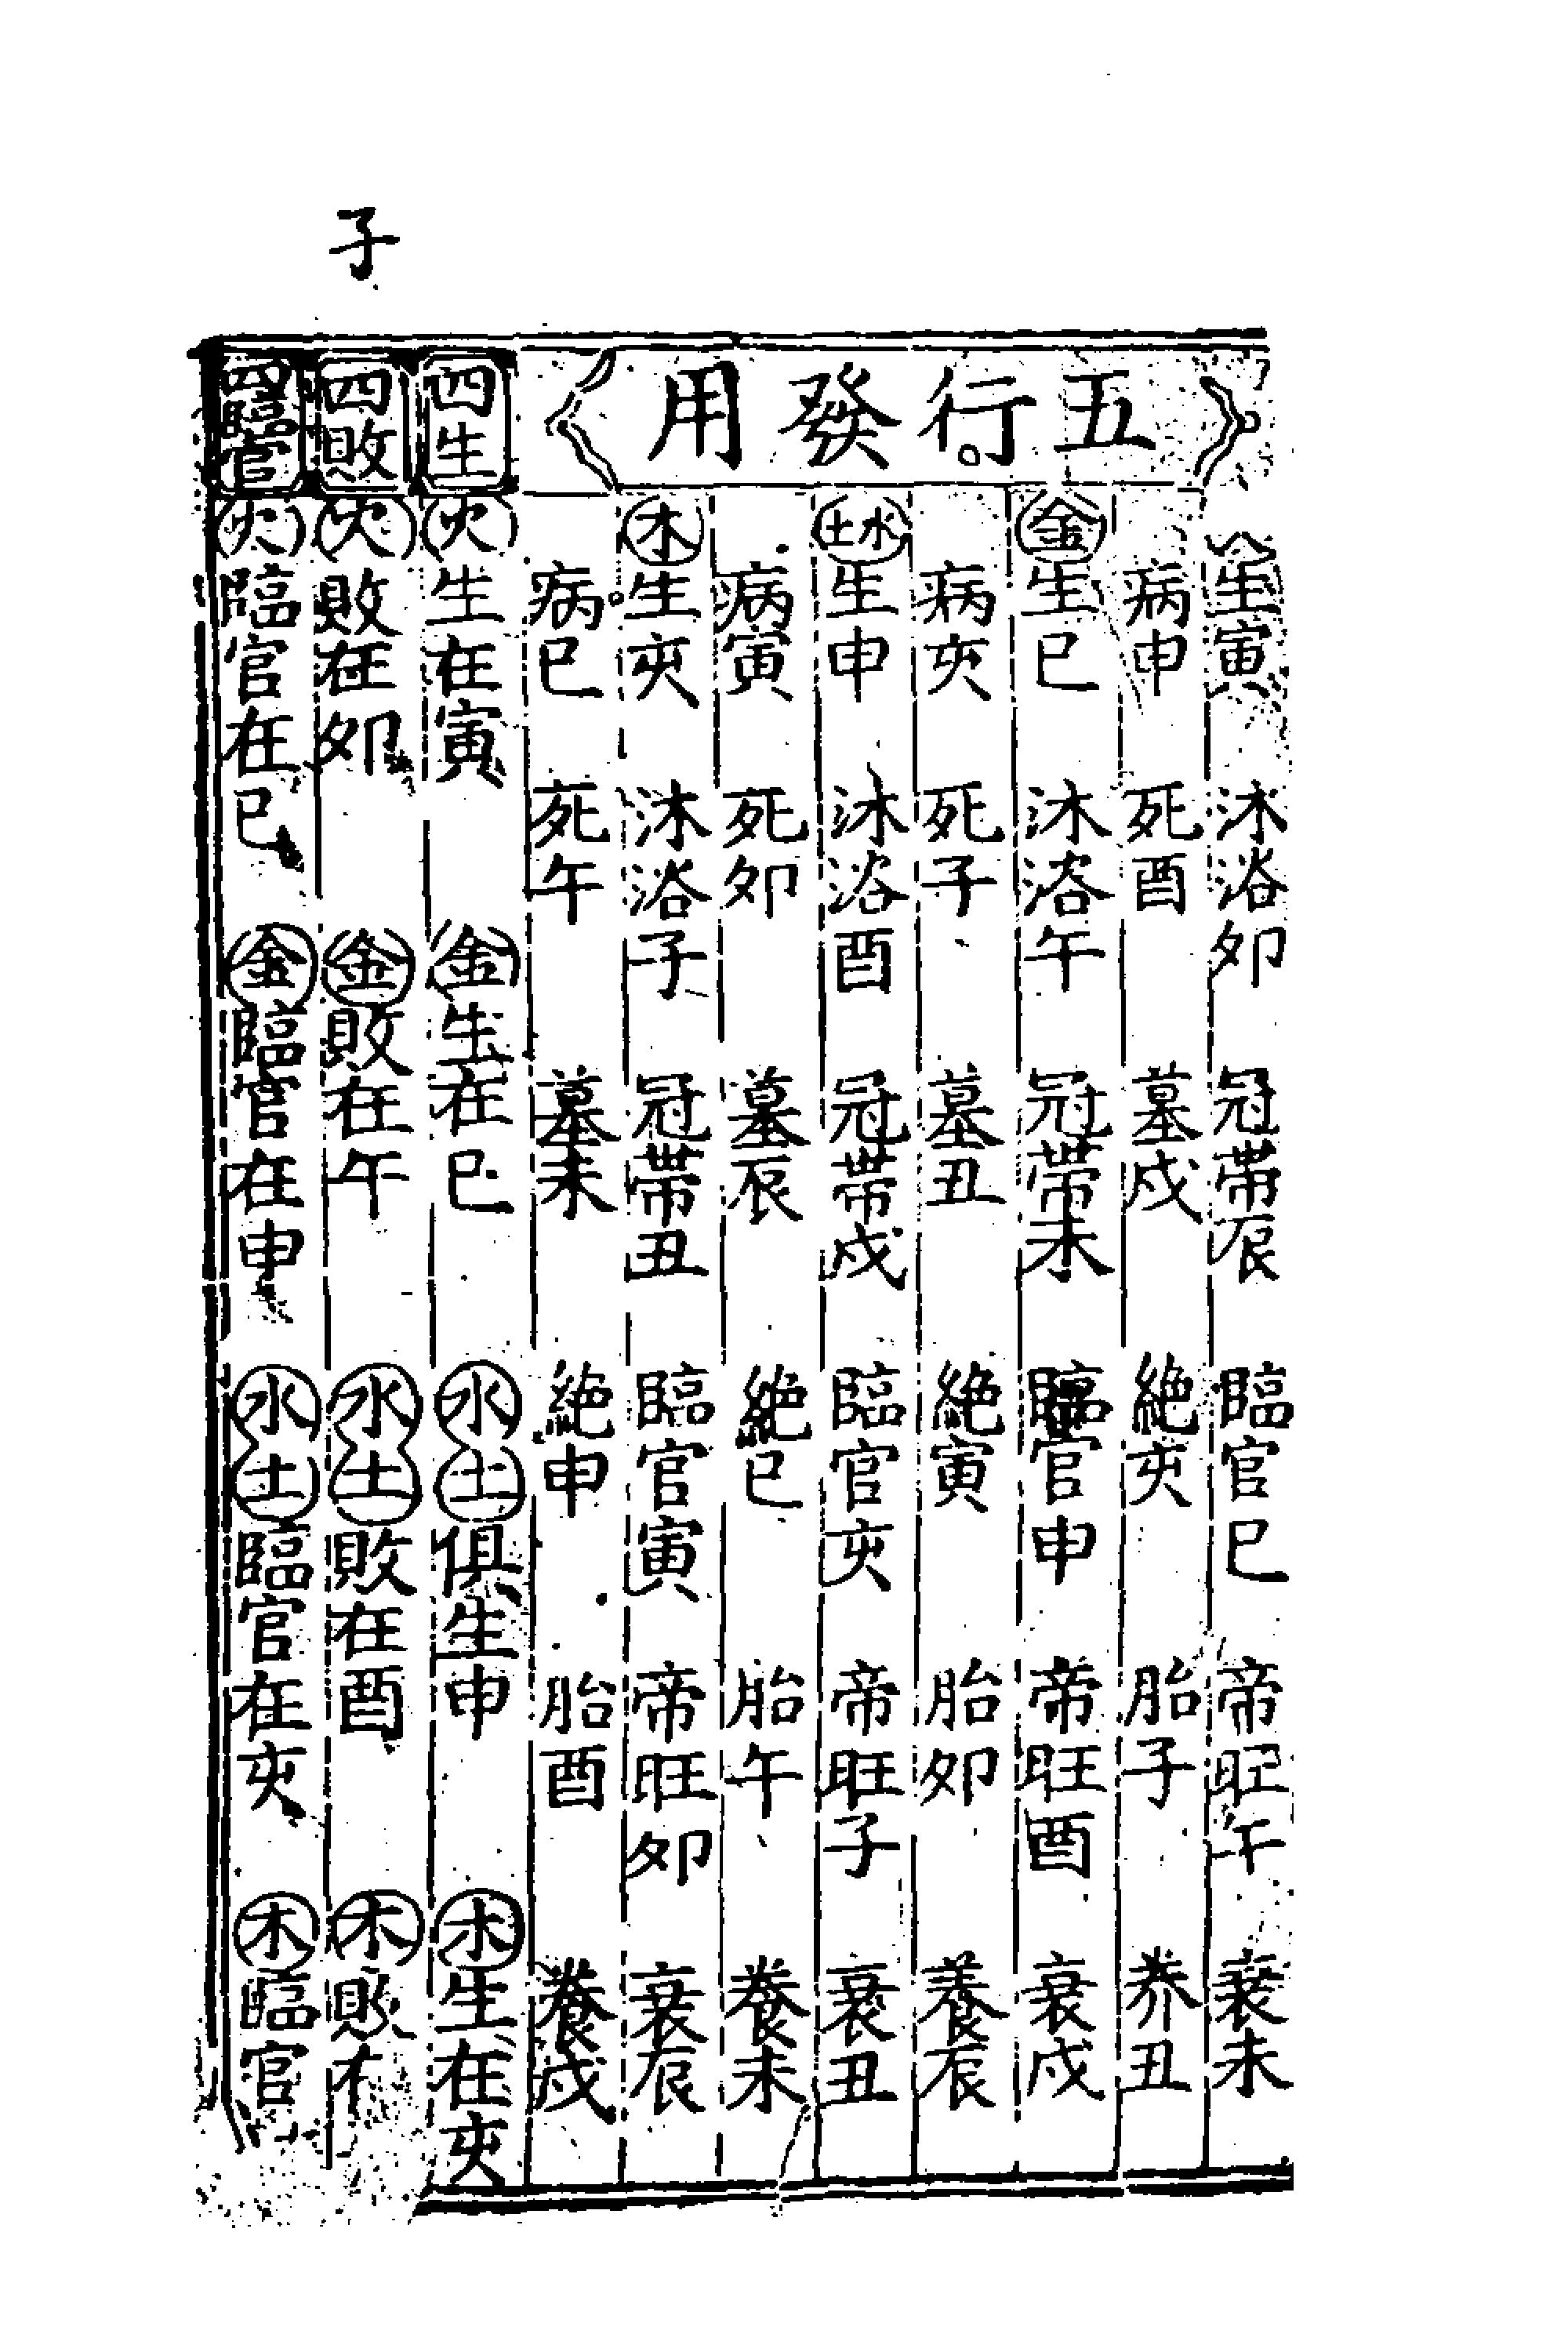 子
五行發用
生寅 沐浴卯 冠帶辰 臨官巳 帝旺午 衰未
病申 死酉 墓戌 絶亥 胎子 养丑
金 生巳 沐浴午 冠帶未 臨官申 帝旺酉 衰戌
病亥 死子 墓丑 絶寅 胎卯 養辰
水土 生申 沐浴酉 冠帶戌 臨官亥 帝旺子 衰丑
病寅 死卯 墓辰 絶巳 胎午 養未
木 生亥 沐浴子 冠帶丑 臨官寅 帝旺卯 衰辰
病巳 死午 墓未 絶申 胎酉 養戌
四生 火 生在寅 金 生在巳 水土 俱生申 木 生在亥
四敗 火 敗在卯 金 敗在午 水土 敗在酉 木 敗在
四臨官 火 臨官在巳 金 臨官在申 水土 臨官在亥 木 臨官